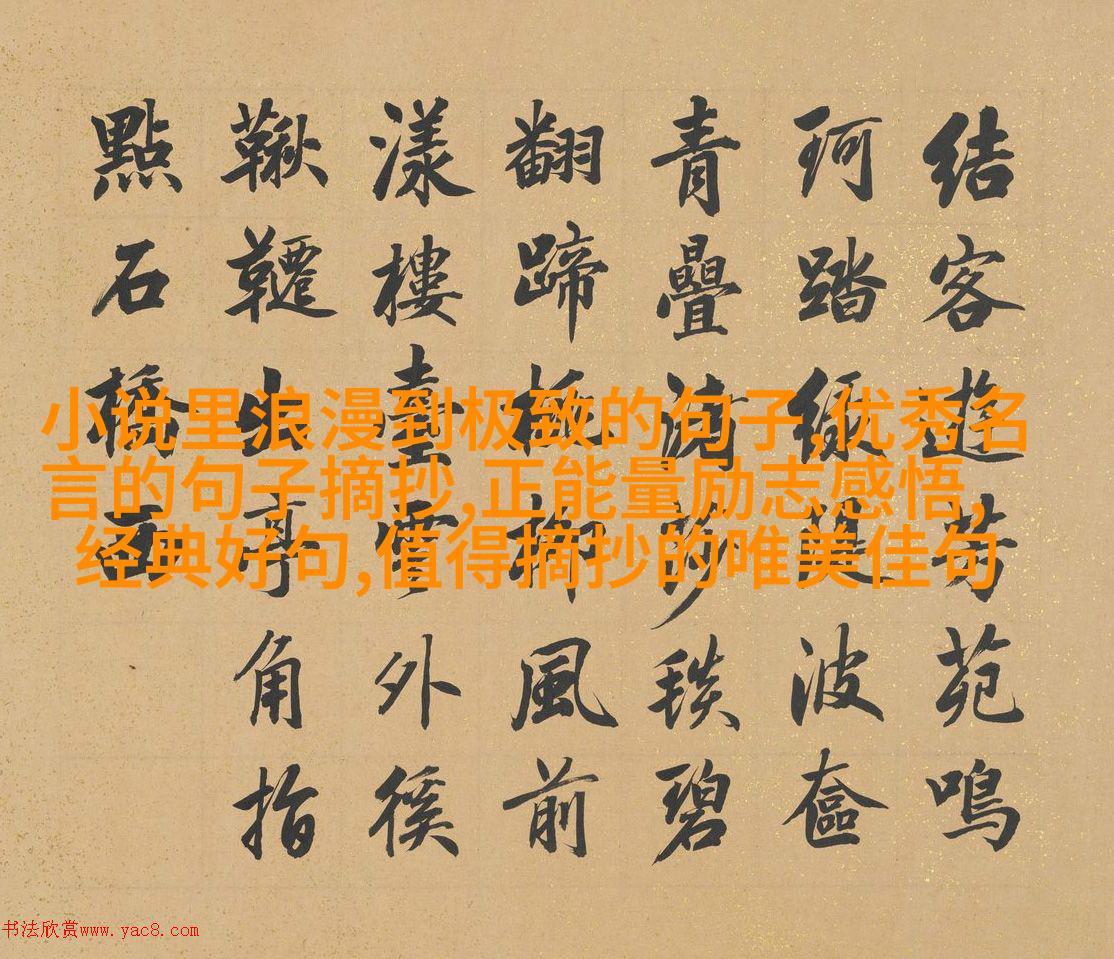 結客遊芳苑鳴
珂踏綠波奩
青疊毯碧
翻蹄桃柳風前
漾樓臺雲外徯
鞦韆出亭角指
點石橋西
小说里浪漫到极致的句子,优秀名
言的句子摘抄,正能量励志感悟,
经典好句,值得摘抄的唯美佳句
书法欣赏www.yac8.com